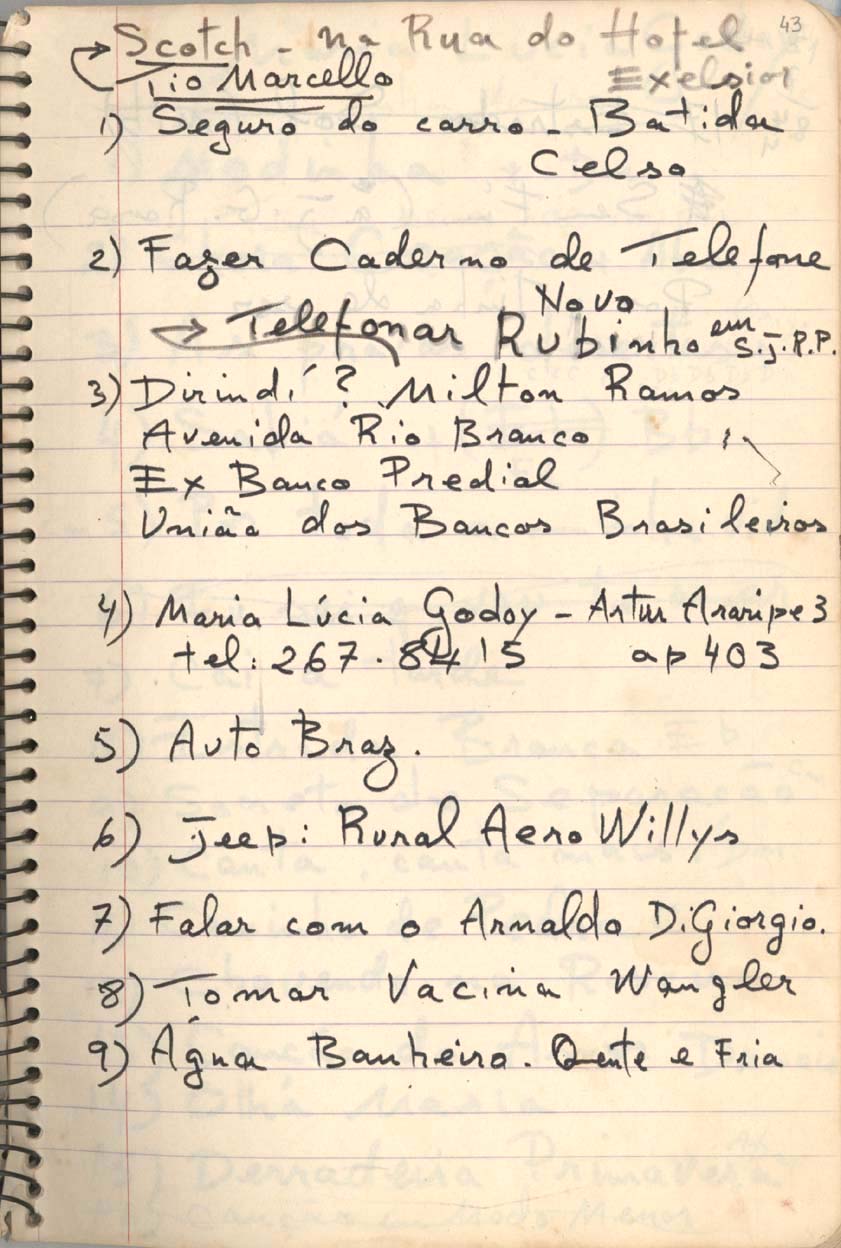 43
Scotch - na Rua do Hotel
Exelsior
Tio Marcello
1) Seguro do carro - Batida
Celso
2) Fazer Caderno de Telefone
Novo
Telefonar Rubinho em S.J.R.P.
3) Dirindí? Milton Ramos
Avenida Rio Branco
Ex Banco Predial
União dos Bancos Brasileiros
4) Maria Lúcia Godoy - Artur Araripe 3
tel: 267.8415 ap 403
5) Auto Braz.
6) Jeep: Rural Aero Willys
7) Falar com o Arnaldo DiGiorgio.
8) Tomar Vacina Wangler
9) Água Banheiro. Qente e Fria